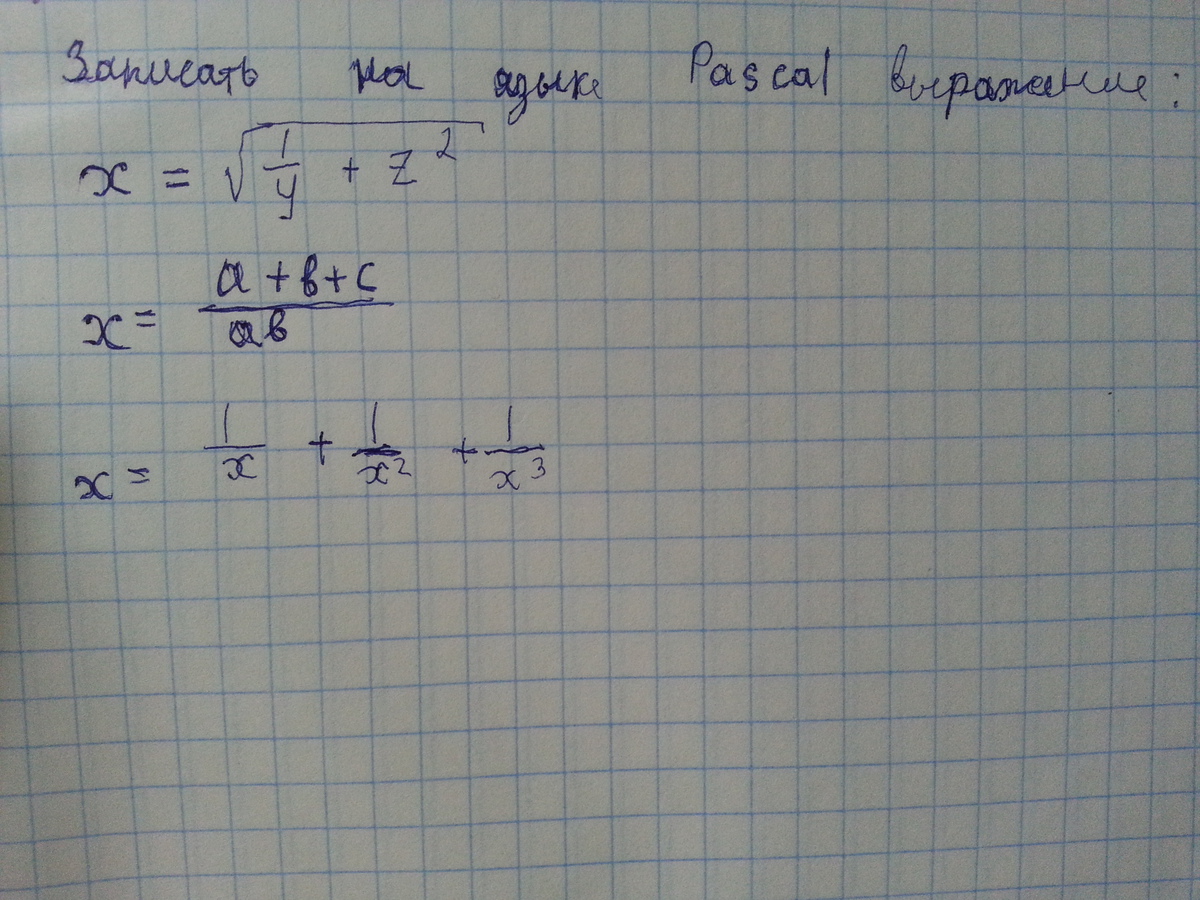 Записать на языке Pascal выражение:
x = √(1/y + z²)
x = (a+b+c)/(ab)
x = 1/x + 1/x² + 1/x³